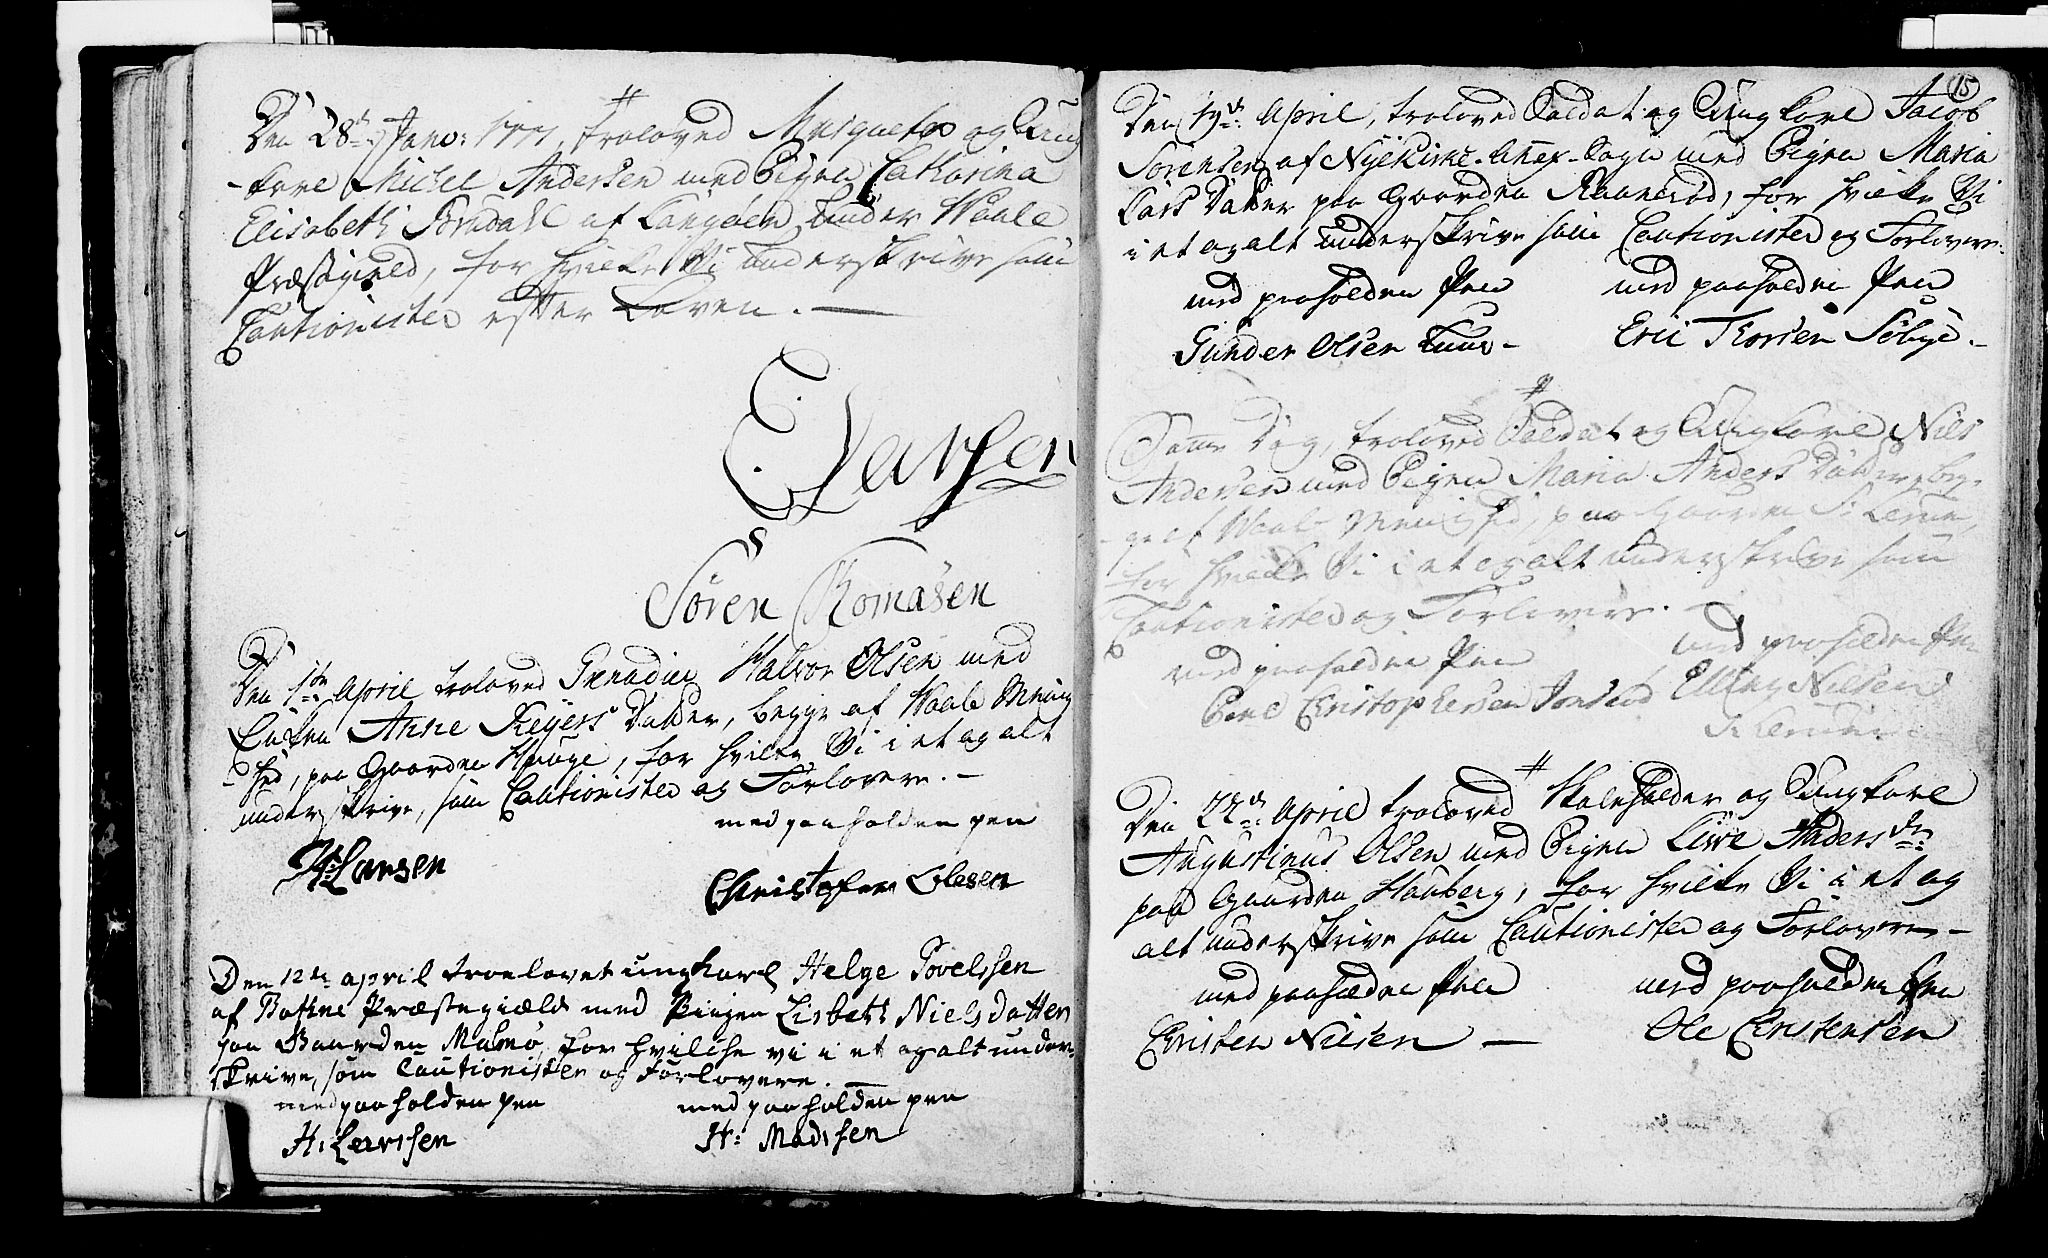 Den 28de Janv: 1777, troloved Musqueter og Ung-
-karl Michel Andersen med Pigen Catharina
Elisabeth Brudahl af Langøen under Waale
Præstegield, for hvilke Vi underskrive som
Cautionister efter Loven. —
Larsen
Søren Tomasen
Den 1ste April troloved Grenadier Halvor Olsen med
Enken Anne Reyers Datter, begge af Waale Menig-
-hed, paa Gaarden Houge, for hvilke Vi i et og alt
underskrive, som Cautionister og Forlovere. —
med paaholden pen
H: Larsen
Christofer Olesen
Den 12te april troelovet ungkarl Helge Povelssen
af Botne Præstegiæld med Piigen Lisbeth Nielsdatter
paa Gaarden Mulmø, for hvilche vi i et og alt under-
skrive, som Cautionister og Forlovere. —
med paaholden pen med paaholden pen
H: Larssen H: Madssen
15
Den 19de April, troloved Soldat og Ungkarl Jacob
Sørensen af Nyekirke-Anex-Sogn med Pigen Maria
Lars Datter paa Gaarden Raanerød, for hvilke Vi
i et og alt underskrive som Cautionister og Forlovere.
med paaholden Pen med paaholden Pen
Gunder Olsen Eric Thorsen Søbye. -
Samme Dag, troloved Soldat og Ungkarl Nils
Andersen med Pigen Maria Anders Datter, beg-
-ge af Waale Menighed, paa Gaarden
for hvilke Vi i et og alt underskrive som
Cautionister og Forlovere.
med paaholden Pen med paaholden Pen
Christophersen Elling Nilsen
Den 22de April troloved Skoleholder og Ungkarl
Augustinus Olsen med Pigen Live Anders dr:
paa Gaarden Hauberg, for hvilke Vi i et og
alt underskrive som Cautionister og Forlovere —
med paaholden Pen med paaholden Pen
Christen Nilsen — Ole Christensen